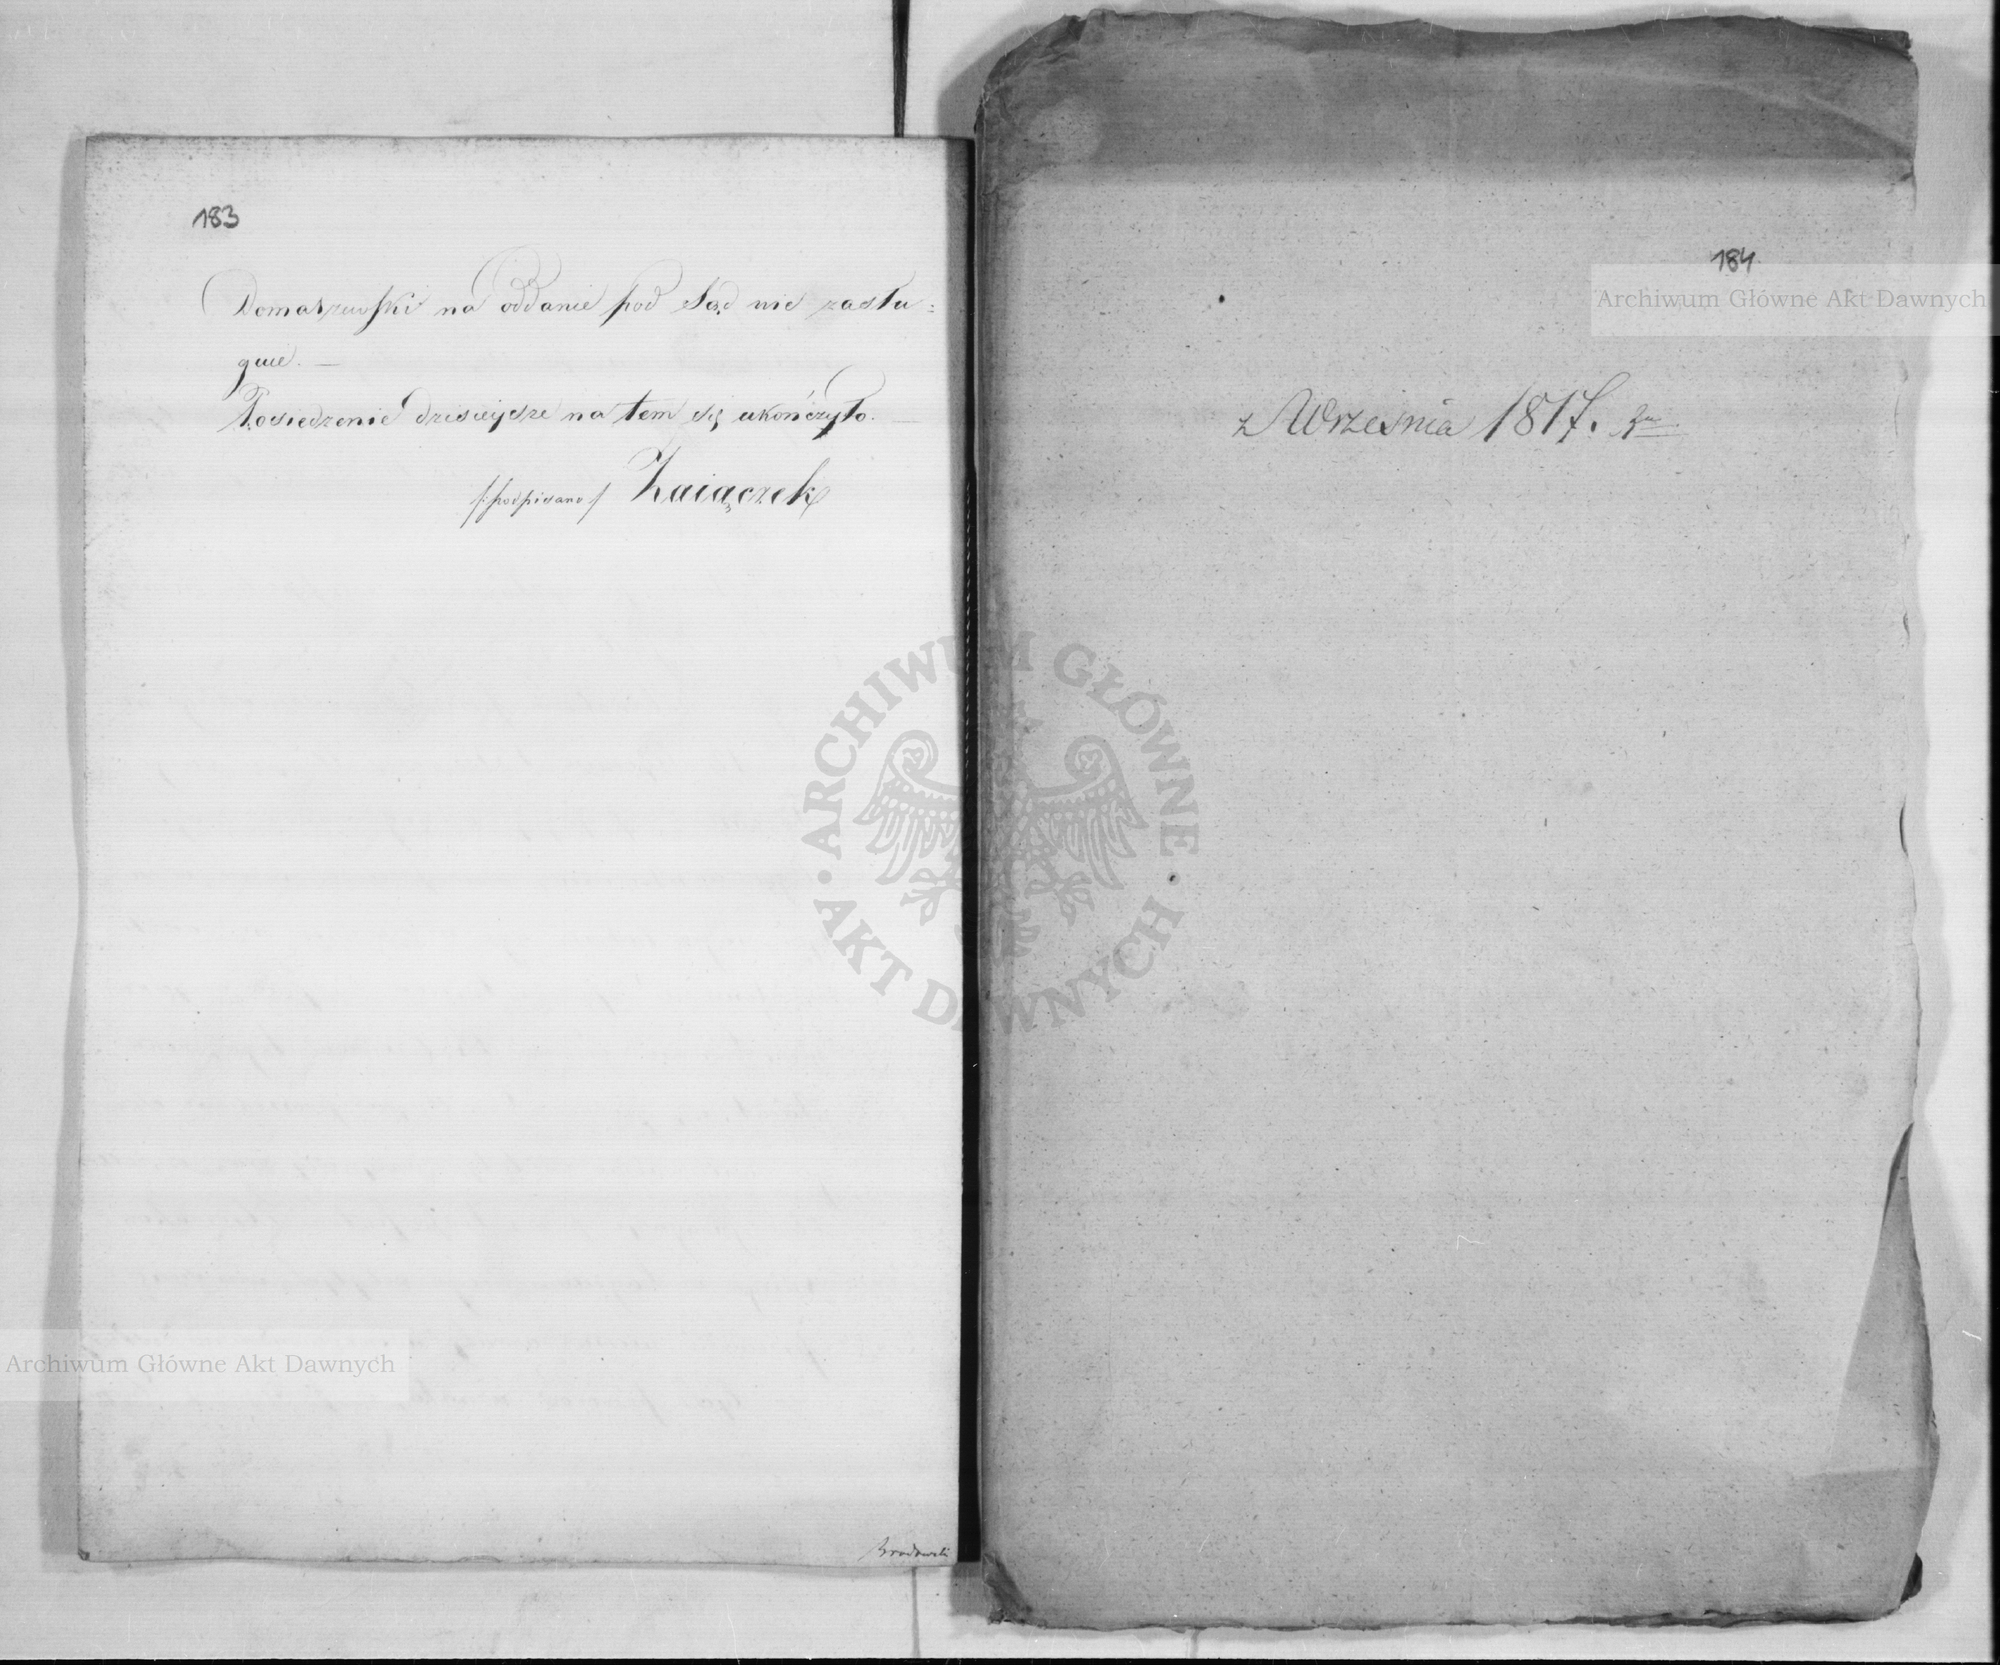 183
Domaszewski na oddanie pod Sąd nie zasłu=
guie. —
Posiedzenie dzisieysze na tem się ukończyło. —
/:podpisano/ Zaiączek
Brodowski
184
z Września 1817.
Archiwum Główne Akt Dawnych
ARCHIWUM GŁÓWNE AKT DAWNYCH
Archiwum Główne Akt Dawnych